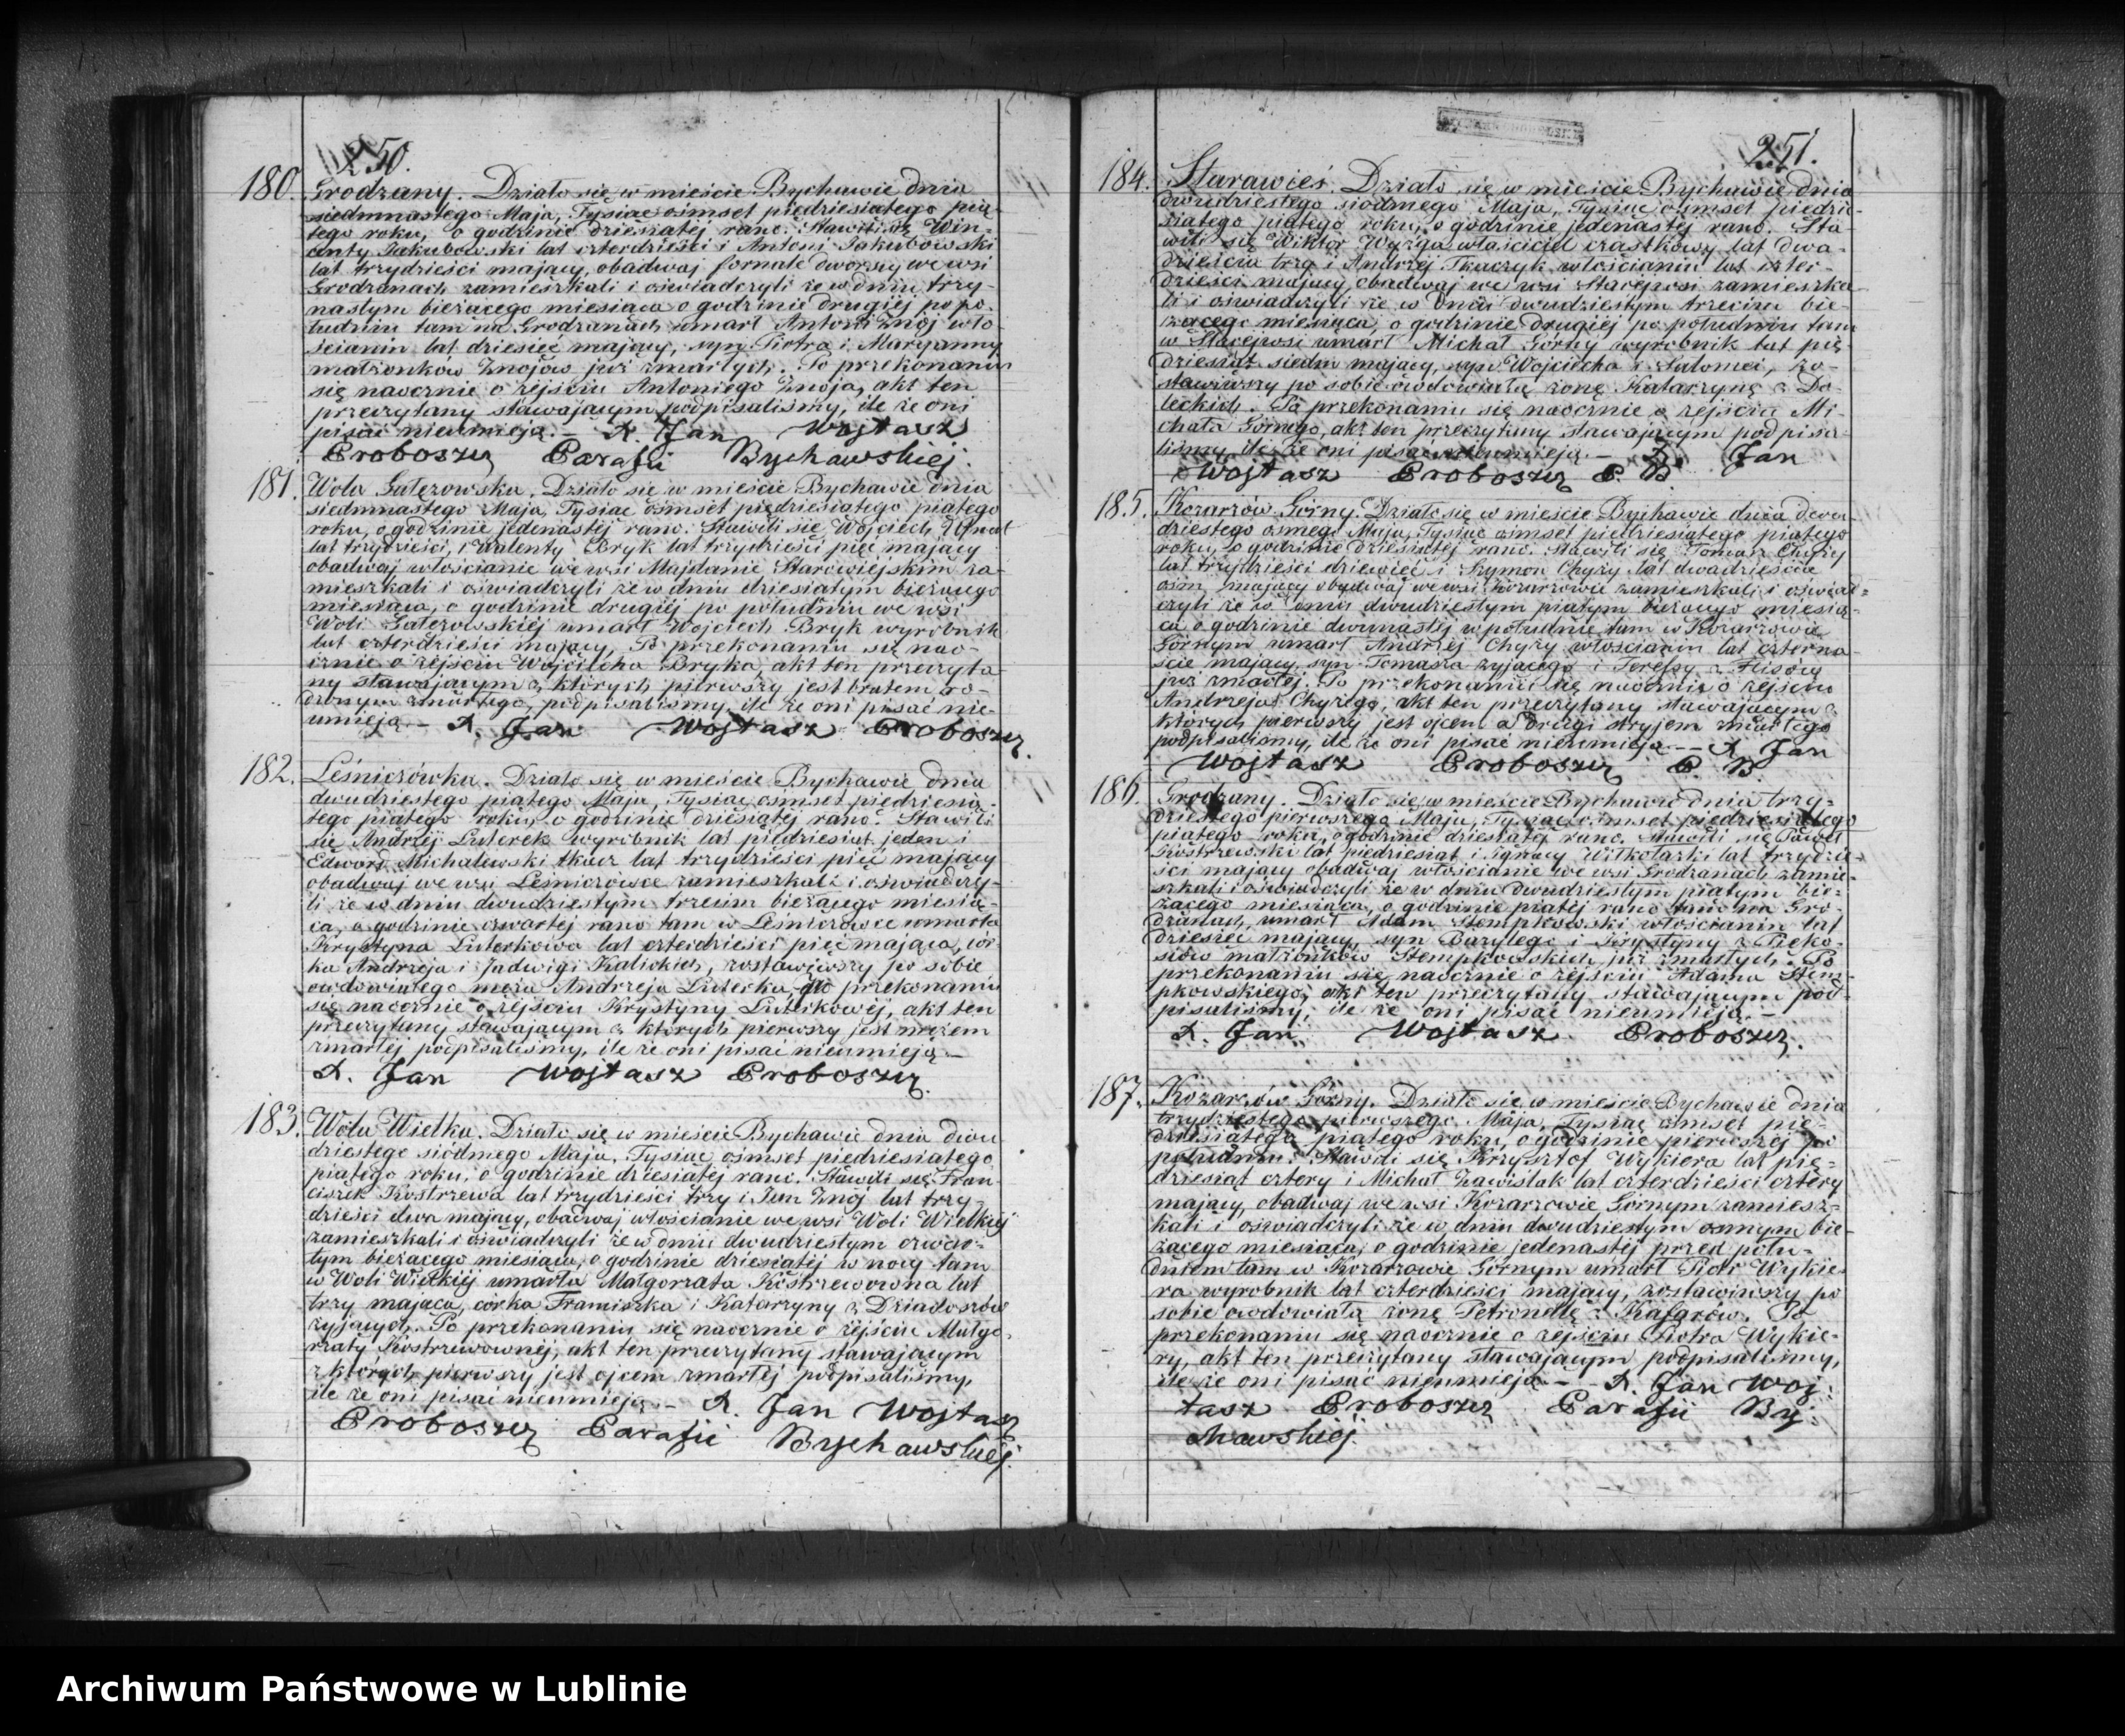 250.
180. Grodzany. Działo się w mieście Bychawie dnia
siedmnastego Maja, Tysiąc ośmset pięćdziesiątego pią-
tego roku, o godzinie dziesiątej rano. Stawili się Win-
centy Jakubowski lat czterdzieści i Antoni Jakubowski
lat trzydzieści mający, obadwaj fornale dworscy we wsi
Grodzanach zamieszkali i oświadczyli że w dniu trzy-
nastym bieżącego miesiąca o godzinie drugiej po po-
łudniu tam na Grodzanach umarł Antoni Znój wło-
ścianin lat dziesięć mający, syn Piotra i Maryanny
małżonków Znojów już zmarłych. Po przekonaniu
się naocznie o zejściu Antoniego Znoja, akt ten
przeczytany stawającym podpisaliśmy, ile że oni
pisać nieumieją. — X. Jan Wojtasz
Proboszcz Parafii Bychawskiej.
181. Wola Gałęzowska. Działo się w mieście Bychawie dnia
siedmnastego Maja, Tysiąc ośmset pięćdziesiątego piątego
roku, o godzinie jedenastej rano. Stawili się Wojciech
lat trzydzieści, i Walenty Bryk lat trzydzieści pięć mający
obadwaj włościanie we wsi Majdanie Starowiejskim za-
mieszkali i oświadczyli że w dniu dziesiątym bieżącego
miesiąca, o godzinie drugiej po południu we wsi
Woli Gałęzowskiej umarł Wojciech Bryk wyrobnik
lat czterdzieści mający, Po przekonaniu się nao-
cznie o zejściu Wojciecha Bryka, akt ten przeczyta-
ny stawającym z których pierwszy jest bratem ro-
dzonym zmarłego, podpisaliśmy, ile że oni pisać nie-
umieją. — X. Jan Wojtasz Proboszcz.
182. Leśniczówka. Działo się w mieście Bychawie dnia
dwudziestego piątego Maja, Tysiąc ośmset pięćdziesią-
tego piątego roku, o godzinie dziesiątej rano. Stawili
się Andrzej Luterek wyrobnik lat pięćdziesiąt jeden i
Edward Michalewski tkacz lat trzydzieści pięć mający
obadwaj we wsi Leśniczówce zamieszkali i oświadczy-
li że w dniu dwudziestym trzecim bieżącego miesią-
ca, o godzinie czwartej rano tam w Leśniczówce umarła
Krystyna Luterkowa lat czterdzieści pięć mająca, cór-
ka Andrzeja i Jadwigi Kalickich, zostawiwszy po sobie
owdowiałego męża Andrzeja Luterka. Po przekonaniu
się naocznie o zejściu Krystyny Luterkowej, akt ten
przeczytany stawającym z których pierwszy jest mężem
zmarłej podpisaliśmy, ile że oni pisać nieumieją —
X. Jan Wojtasz Proboszcz.
183. Wola Wielka. Działo się w mieście Bychawie dnia dwu
dziestego siódmego Maja, Tysiąc ośmset pięćdziesiątego
piątego roku, o godzinie dziesiątej rano. Stawili się Fran-
ciszek Kostrzewa lat trzydzieści trzy i Jan Znój lat trzy-
dzieści dwa mający, obadwaj włościanie we wsi Woli Wielkiej
zamieszkali i oświadczyli że w dniu dwudziestym czwar-
tym bieżącego miesiąca, o godzinie dziesiątej w nocy tam
w Woli Wielkiej umarła Małgorzata Kostrzewowna lat
trzy mająca, córka Franciszka i Katarzyny z Dziadoszów
żyjących. Po przekonaniu się naocznie o zejściu Małgo-
rzaty Kostrzewownej, akt ten przeczytany stawającym
z których pierwszy jest ojcem zmarłej podpisaliśmy,
ile że oni pisać nieumieją. — X. Jan Wojtasz
Proboszcz Parafii Bychawskiej.
251.
184. Starawieś. Działo się w mieście Bychawie dnia
dwudziestego siódmego Maja, Tysiąc ośmset pięćdzie-
siątego piątego roku, o godzinie jedenastej rano. Sta-
wili się Wiktor Wyzga właściciel cząstkowy lat dwa-
dzieścia trzy i Andrzej Tkaczyk włościanin lat czter-
dzieści mający, obadwaj we wsi Starejwsi zamieszka-
li i oświadczyli że w dniu dwudziestym trzecim bie-
żącego miesiąca, o godzinie drugiej po południu tam
w Starejwsi umarł Michał Górny wyrobnik lat pię-
dziesiąt siedm mający, syn Wojciecha i Salomei, zo-
stawiwszy po sobie owdowiałą żonę Katarzynę z Do-
leckich. Po przekonaniu się naocznie o zejściu Mi-
chała Górnego, akt ten przeczytany stawającym podpisa-
liśmy, ile że oni pisać nieumieją. — X. Jan
Wojtasz Proboszcz P. B.
185. Kozarzów Górny. Działo się w mieście Bychawie dnia dwu-
dziestego ósmego Maja, Tysiąc ośmset pięćdziesiątego piątego
roku, o godzinie dziesiątej rano. Stawili się Tomasz Chyży
lat trzydzieści dziewięć i Szymon Chyży lat dwadzieścia
ośm mający obydwaj we wsi Kozarzowie zamieszkali i oświad-
czyli że w dniu dwudziestym piątym bieżącego miesią-
ca o godzinie dwunastej w południe tam w Kozarzowie
Górnym umarł Andrzej Chyży włościanin lat czterna-
ście mający, syn Tomasza żyjącego i Teressy z Flisów
już zmarłej. Po przekonaniu się naocznie o zejściu
Andrzeja Chyżego, akt ten przeczytany stawającym z
których pierwszy jest ojcem a drugi stryjem zmarłego
podpisaliśmy, ile że oni pisać nieumieją. — X. Jan
Wojtasz Proboszcz P. B.
186. Grodzany. Działo się w mieście Bychawie dnia trzy-
dziestego pierwszego Maja, Tysiąc ośmset pięćdziesiątego
piątego roku, o godzinie dziesiątej rano. Stawili się Paweł
Kostrzewski lat pięćdziesiąt i Ignacy Witkolaski lat trzydzie-
ści mający obadwaj włościanie we wsi Grodzanach zamie-
szkali i oświadczyli że w dniu dwudziestym piątym bie-
żącego miesiąca, o godzinie piątej rano tam na Gro-
dzanach, umarł Adam Stempkowski włościanin lat
dziesięć mający, syn Bazylego i Krystyny z Pięko-
siów małżonków Stempkowskich już zmarłych. Po
przekonaniu się naocznie o zejściu Adama Stem-
pkowskiego, akt ten przeczytany stawającym pod-
pisaliśmy, ile że oni pisać nieumieją. —
X. Jan Wojtasz Proboszcz.
187. Kozarzów Górny. Działo się w mieście Bychawie dnia
trzydziestego pierwszego Maja, Tysiąc ośmset pię-
dziesiątego piątego roku, o godzinie pierwszej po
południu. Stawili się Krzysztof Wykiera lat pię-
dziesiąt cztery i Michał Zawiślak lat czterdzieści cztery
mający, obadwaj we wsi Kozarzowie Górnym zamiesz-
kali i oświadczyli że w dniu dwudziestym ósmym bie-
żącego miesiąca, o godzinie jedenastej przed połu-
dniem tam w Kozarzowie Górnym umarł Piotr Wykie-
ra wyrobnik lat czterdzieści mający, zostawiwszy po
sobie owdowiałą żonę Petronellę z Kafarów. Po
przekonaniu się naocznie o zejściu Piotra Wykie-
ry, akt ten przeczytany stawającym podpisaliśmy,
ile że oni pisać nieumieją. — X. Jan Woj-
tasz Proboszcz Parafii By-
chawskiej.
Archiwum Państwowe w Lublinie